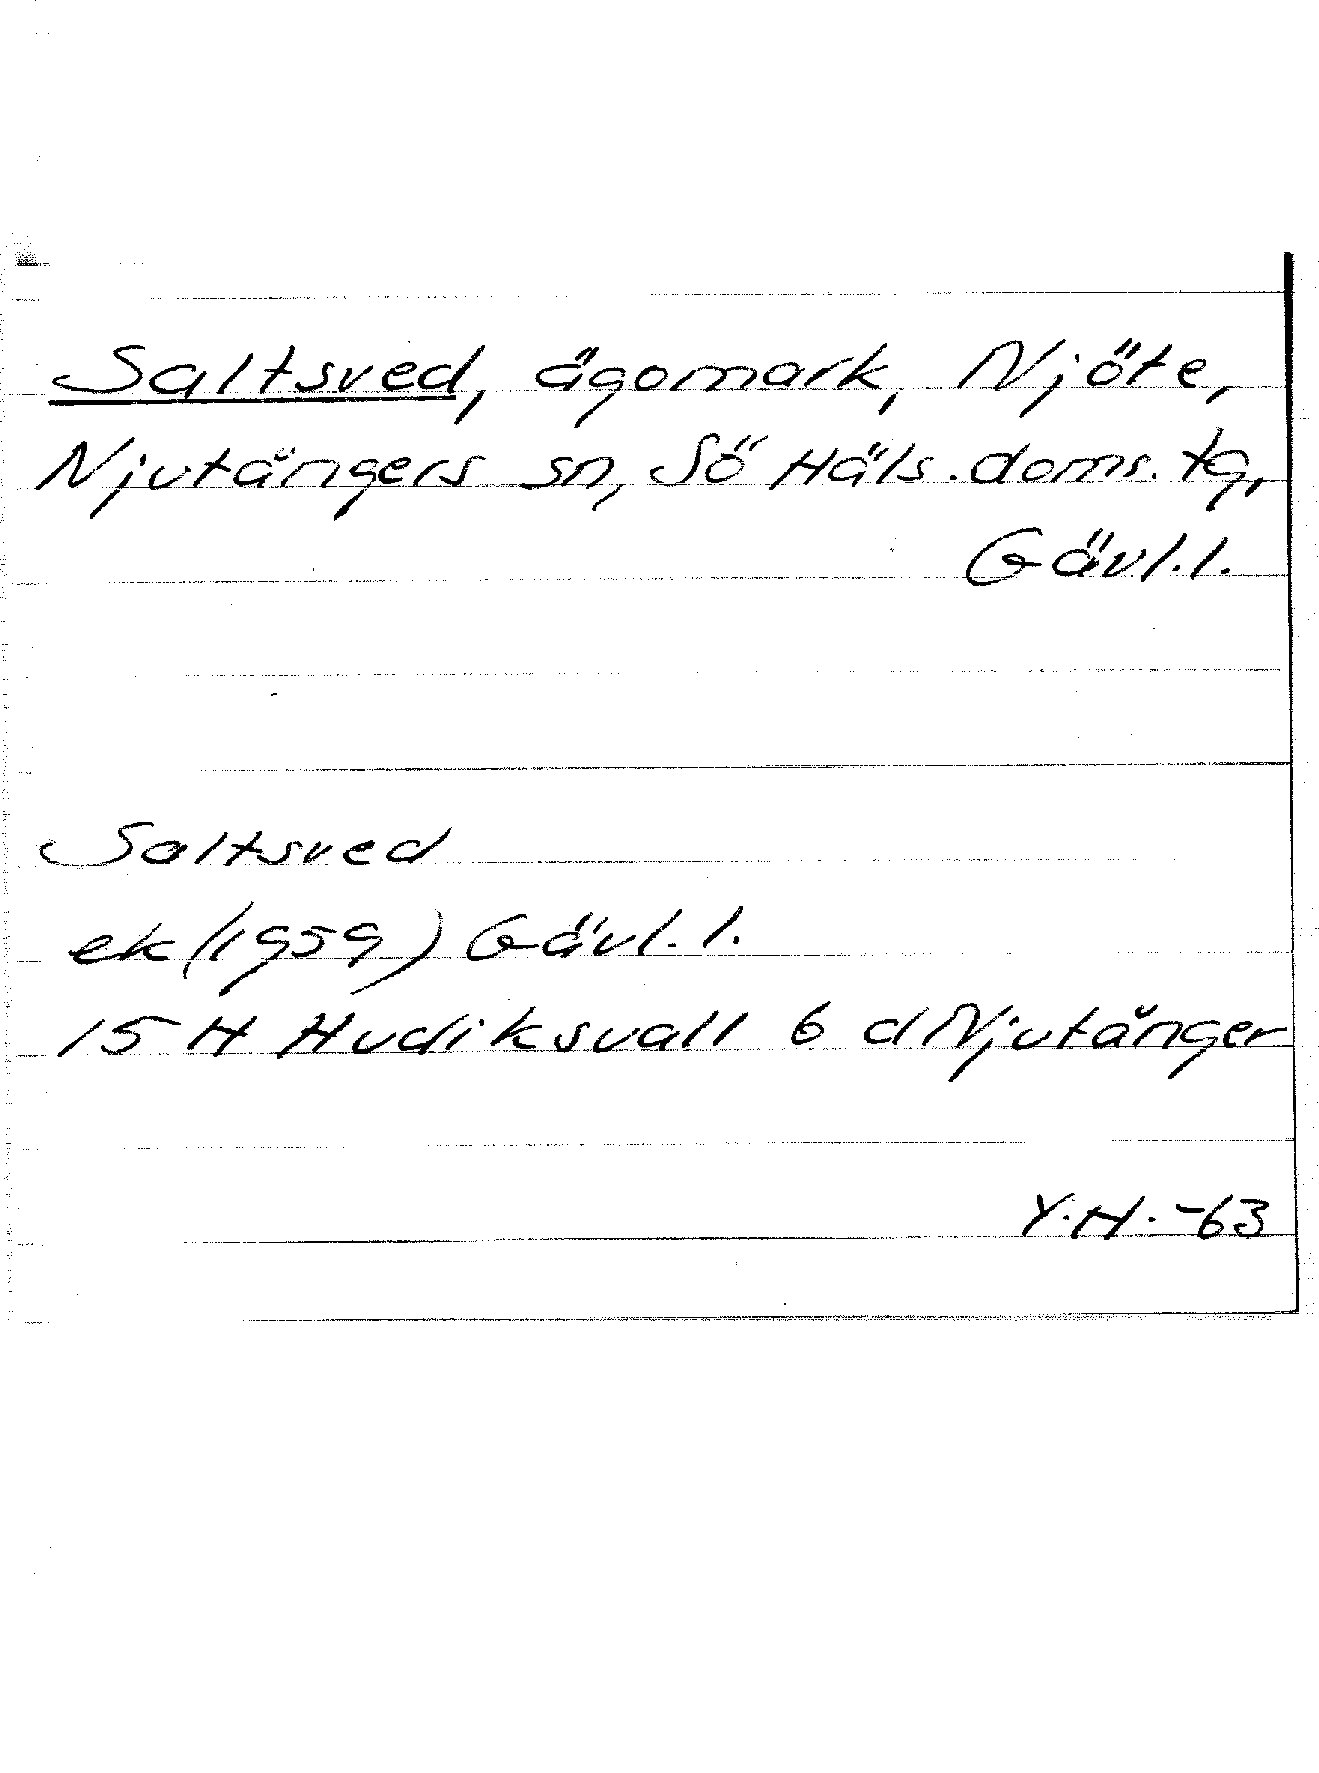 Saltsved, ägomark, Njöte,
Njutångers sn, Sö Häls. doms. tg,
Gävl. l.
Saltsved
ek (1959) Gävl. l.
15 H Hudiksvall 6 d Njutånger
Y.H. -63